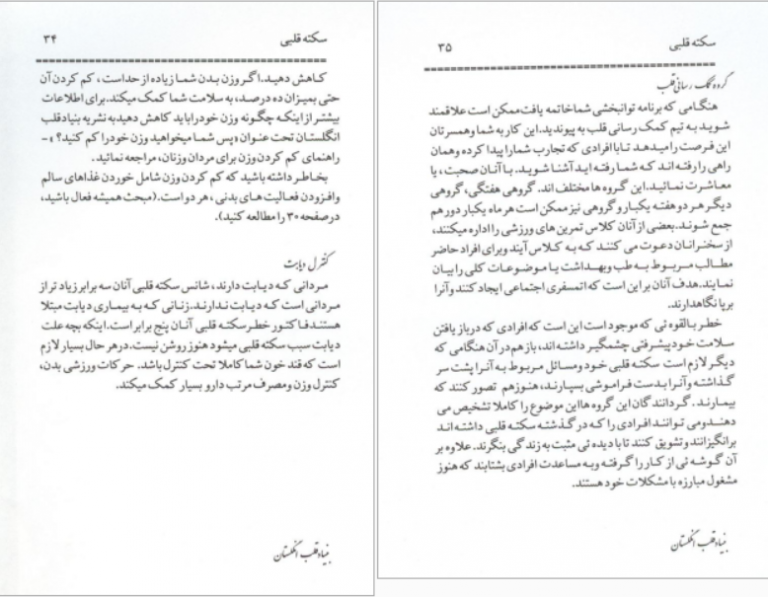 سکته قلبی ۳۴
کاهش دهید. اگر وزن بدن شما زیاده از حد است، کم کردن آن
حتی بمیزان ده درصد، به سلامت شما کمک میکند. برای اطلاعات
بیشتر از اینکه چگونه وزن خود را باید کاهش دهید به نشریه بنیاد قلب
انگلستان تحت عنوان «پس شما میخواهید وزن خود را کم کنید؟» -
راهنمای کم کردن وزن برای مردان وزنان، مراجعه نمائید.
بخاطر داشته باشید که کم کردن وزن شامل خوردن غذاهای سالم
وافزودن فعالیت های بدنی، هر دو است. (مبحث همیشه فعال باشید،
در صفحه ۳۰ را مطالعه کنید).
کنترل دیابت
مردانی که دیابت دارند، شانس سکته قلبی آنان سه برابر زیاد تر از
مردانی است که دیابت ندارند. زنانی که به بیماری دیابت مبتلا
هستند فاکتور خطر سکته قلبی آنان پنج برابر است. اینکه بچه علت
دیابت سبب سکته قلبی میشود هنوز روشن نیست. در هر حال بسیار لازم
است که قند خون شما کاملا تحت کنترل باشد. حرکات ورزشی بدن،
کنترل وزن ومصرف مرتب دارو بسیار کمک میکند.
بنیاد قلب انگلستان
سکته قلبی ۳۵
گروه کمک رسانی قلب
هنگامی که برنامه توانبخشی شما خاتمه یافت ممکن است علاقمند
شوید به تیم کمک رسانی قلب به پیوندید. این کار به شما وهمسرتان
این فرصت را میدهد تا با افرادی که تجارب شما را پیدا کرده وهمان
راهی را رفته اند که شما رفته اید آشنا شوید. با آنان صحبت، یا
معاشرت نمائید. این گروه ها مختلف اند. گروهی هفتگی، گروهی
دیگر هر دو هفته یکبار و گروهی نیز ممکن است هر ماه یکبار دور هم
جمع شوند. بعضی از آنان کلاس تمرین های ورزشی را اداره میکنند،
از سخنرانان دعوت می کنند که به کلاس آیند وبرای افراد حاضر
مطالب مربوط به طب وبهداشت یا موضوعات کلی را بیان
نمایند. هدف آنان بر این است که اتمسفری اجتماعی ایجاد کنند وآنرا
برپا نگاهدارند.
خطر بالقوه ئی که موجود است این است که افرادی که در باز یافتن
سلامت خود پیشرفتی چشمگیر داشته اند، باز هم در آن هنگامی که
دیگر لازم است سکته قلبی خود ومسائل مربوط به آنرا پشت سر
گذاشته وآنرا بدست فراموشی بسپارند، هنوز هم تصور کنند که
بیمارند. گردانندگان این گروه ها این موضوع را کاملا تشخیص می
دهند ومی توانند افرادی را که در گذشته سکته قلبی داشته اند
برانگیزانند وتشویق کنند تا با دیده ئی مثبت به زندگی بنگرند. علاوه بر
آن گوشه ئی از کار را گرفته وبه مساعدت افرادی بشتابند که هنوز
مشغول مبارزه با مشکلات خود هستند.
بنیاد قلب انگلستان